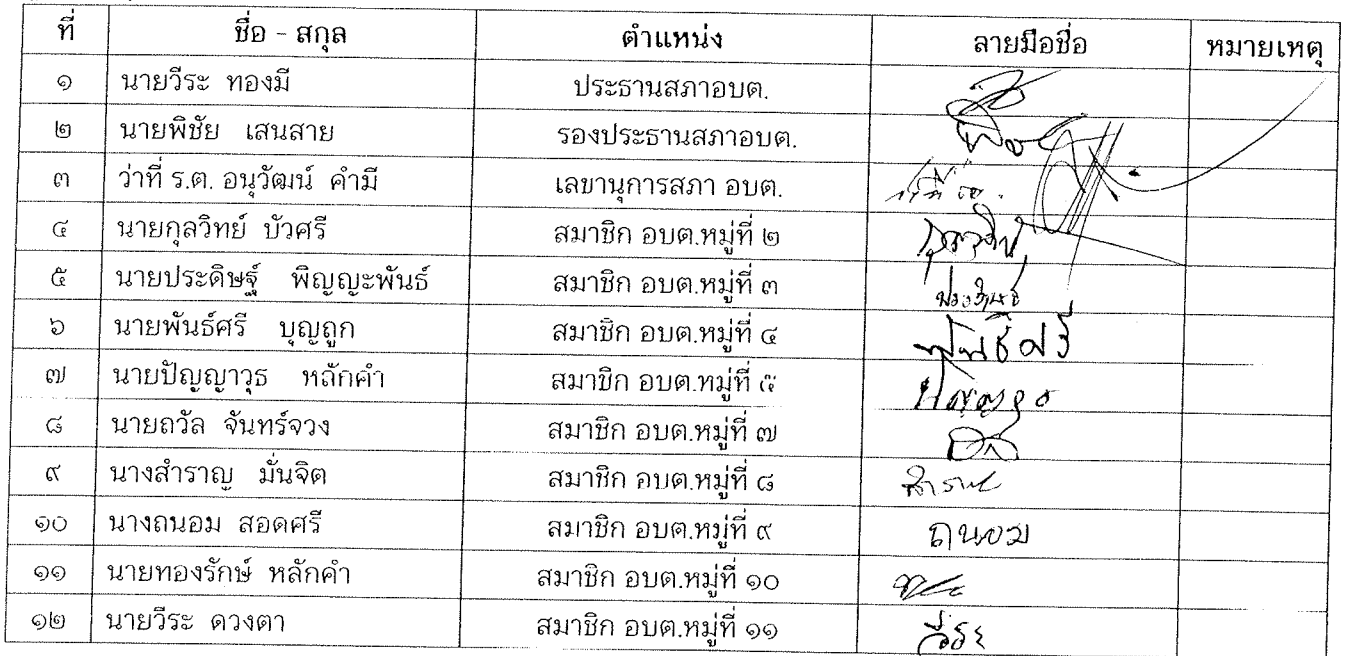 ที่ ชื่อ - สกุล ตำแหน่ง ลายมือชื่อ หมายเหตุ
๑ นายวีระ ทองมี ประธานสภาอบต.
๒ นายพิชัย เสนสาย รองประธานสภาอบต.
๓ ว่าที่ ร.ต. อนุวัฒน์ คำมี เลขานุการสภา อบต.
๔ นายกุลวิทย์ บัวศรี สมาชิก อบต.หมู่ที่ ๒
๕ นายประดิษฐ์ พิญญะพันธ์ สมาชิก อบต.หมู่ที่ ๓
๖ นายพันธ์ศรี บุญถูก สมาชิก อบต.หมู่ที่ ๔ พันธ์ศรี
๗ นายปัญญาวุธ หลักคำ สมาชิก อบต.หมู่ที่ ๕
๘ นายถวัล จันทร์จวง สมาชิก อบต.หมู่ที่ ๗
๙ นางสำราญ มั่นจิต สมาชิก อบต.หมู่ที่ ๘
๑๐ นางถนอม สอดศรี สมาชิก อบต.หมู่ที่ ๙ ถนอม
๑๑ นายทองรักษ์ หลักคำ สมาชิก อบต.หมู่ที่ ๑๐
๑๒ นายวีระ ดวงตา สมาชิก อบต.หมู่ที่ ๑๑ วีระ